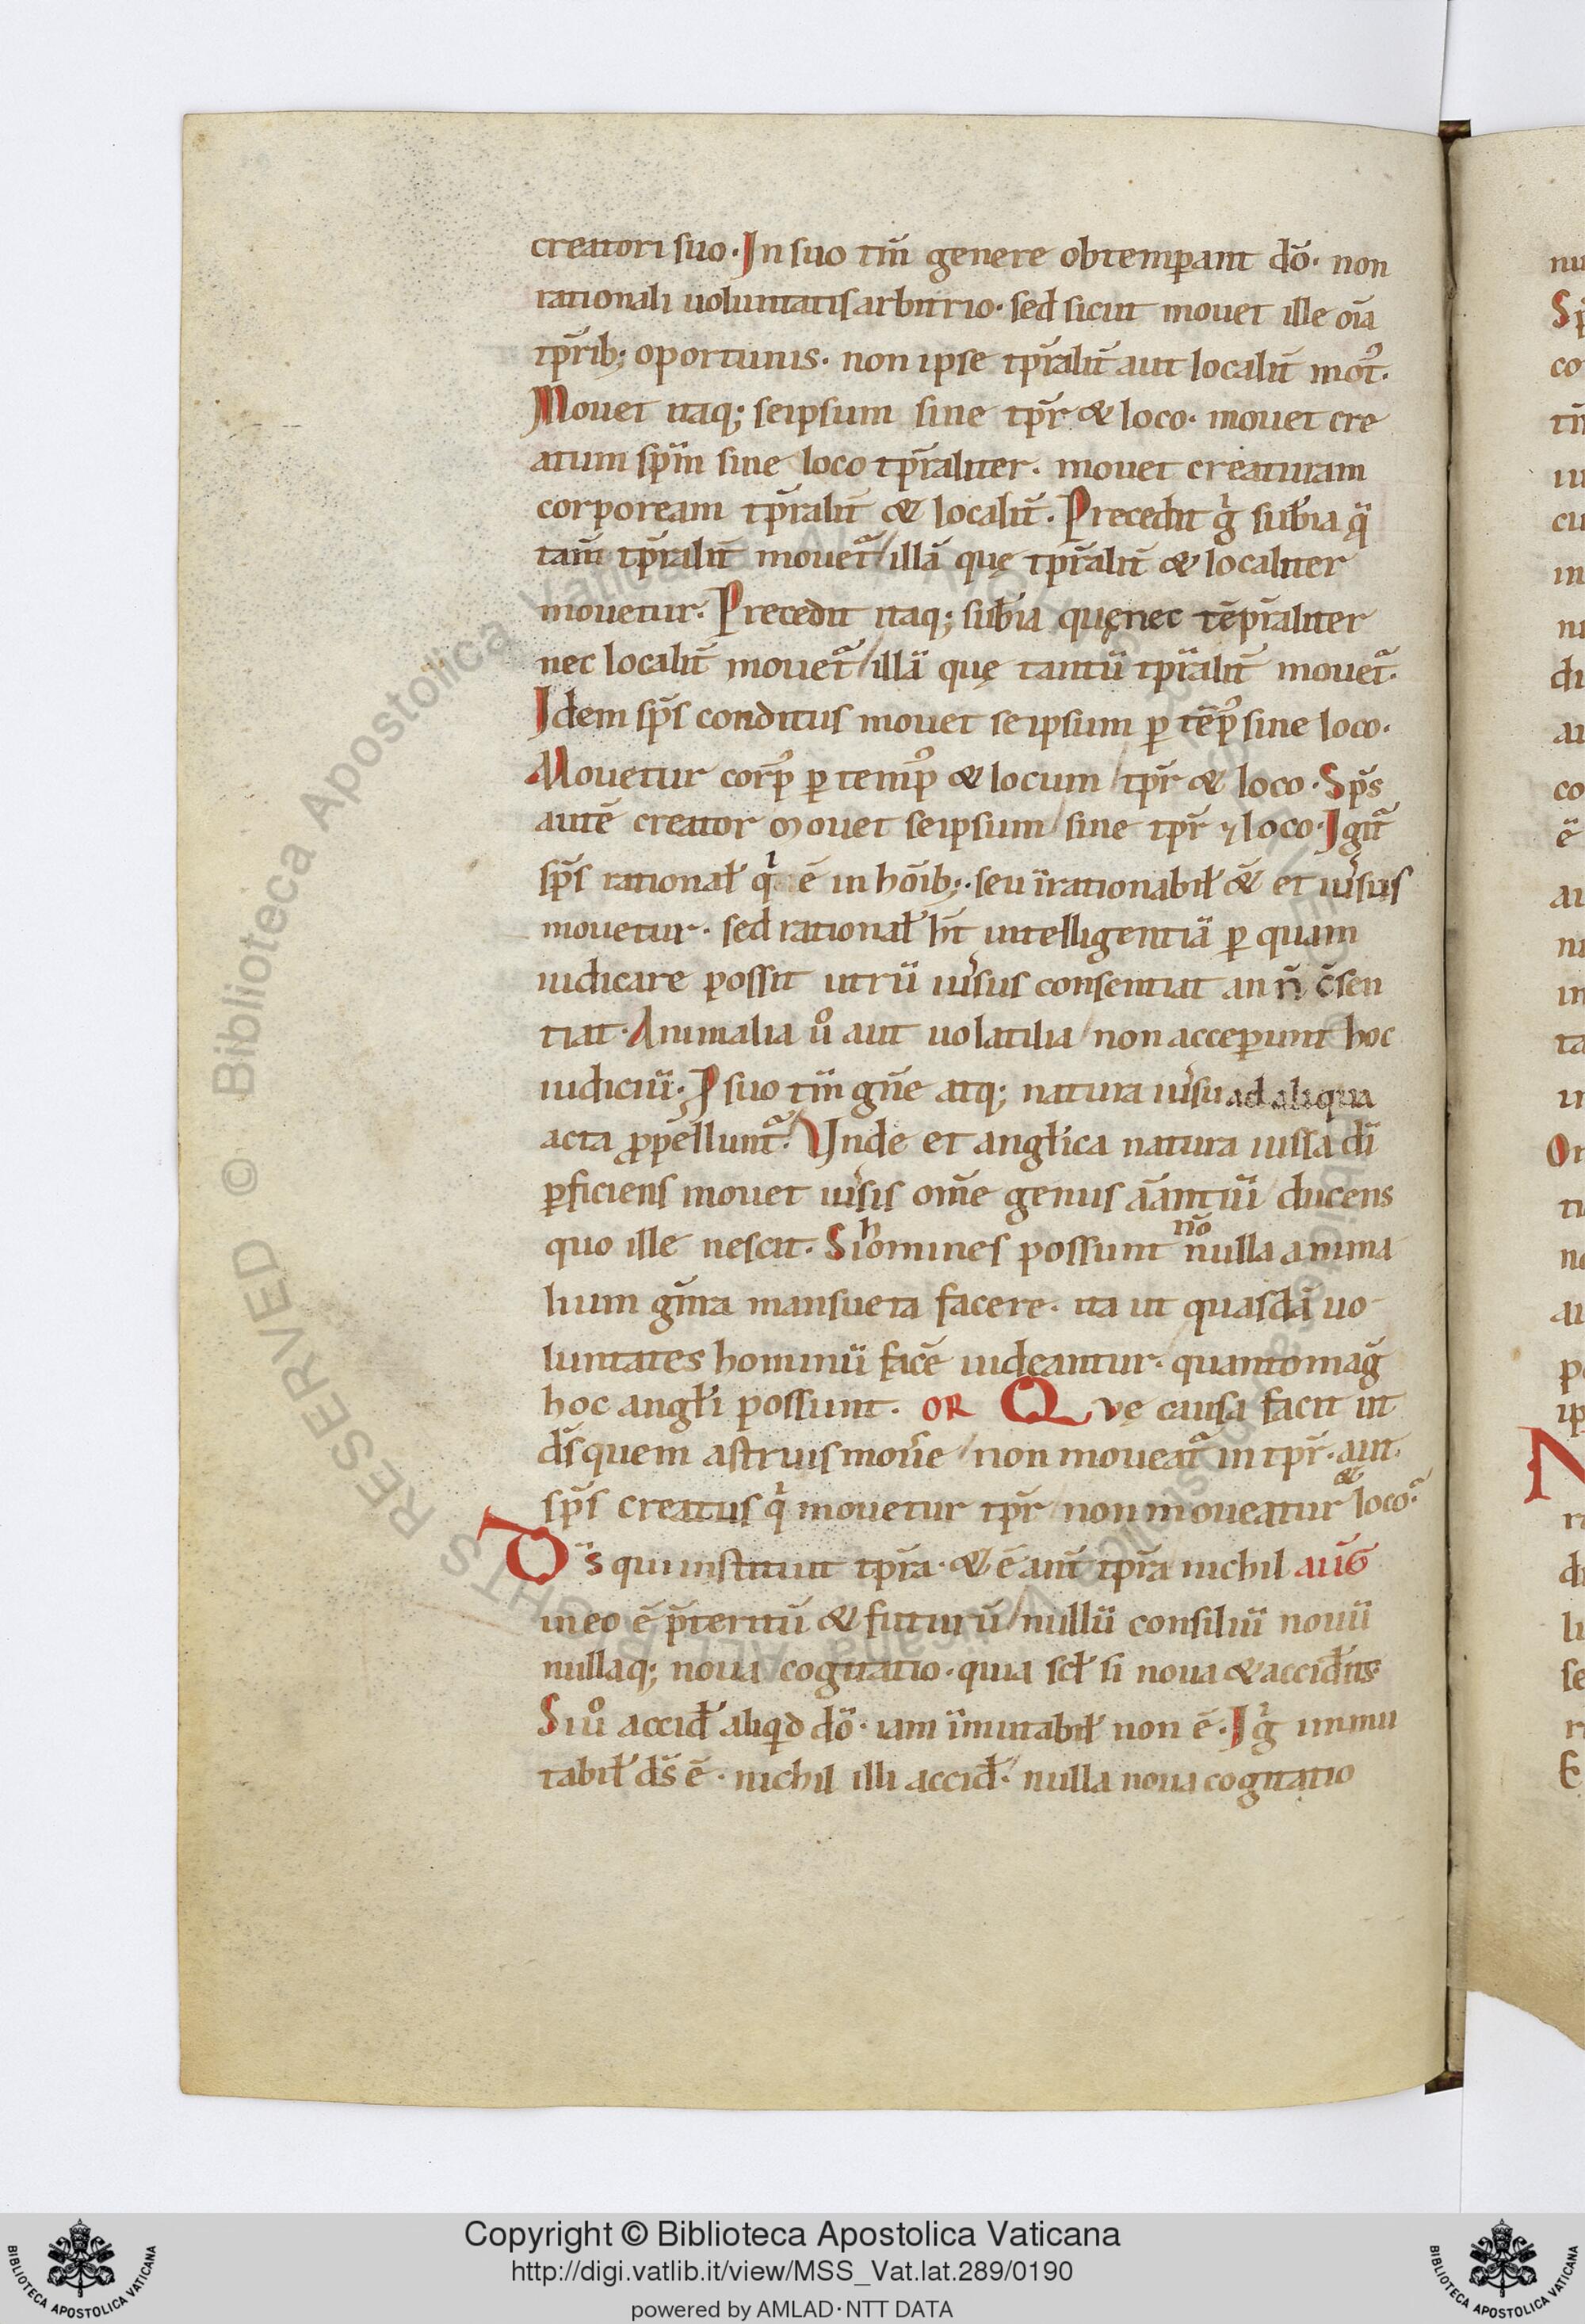 creatori suo. In suo tm̄ genere obtemꝑant dō. non
rationali uoluntatis arbitrio. sed sicut mouet ille oīa
tp̄rib; oportunis. non ipse tp̄ralit̄ aut localit̄ mot᷒.
Mouet itaq; seipsum sine tp̄r & loco. mouet cre
atum sp̄m sine loco tp̄raliter. mouet creaturam
corpoream tp̄ralit̄ & localit̄. Precedit gͥ sub̄ia q̄
tam̄ tp̄ralit̄ mouet᷑/illā quę tp̄ralit̄ & localiter
mouetur. Precedit itaq; sub̄ia quę nec tēpr̄aliter
nec localit̄ mouet᷑/illā quę tantū tp̄ralit̄ mouet᷑.
Idem sp̄s conditus mouet se ipsum ꝑ tēp᷒ sine loco.
Mouetur corp᷒ ꝑ temp᷒ & locum/tp̄r & loco. Sp̄s
autē creator mouet seipsum/sine tp̄r ⁊ loco. Igit᷑
sp̄s rational̄ qͥ ē in hōib;. seu irrationabil̄ & et iūsus
mouetur. sed rational̄ ht̄ intelligentiā ꝑ quam
iudicare possit utrū iūsus consentiat an n̄ c̄sen
tiat. Animalia uͦ aut uolatilia/non acceꝑunt hoc
iudiciū. P suo tm̄ gn̄e atq; natura iūsu ad aliqua
acta ꝓpellunt᷑. Unde et angl̄ica natura iussa dī
ꝑficiens mouet iūsis om̄e genus āantiū/ducens
quo ille nescit. Si homines possunt nō nulla anima
lium gn̄ra mansueta facere. ita ut quasdā uo
luntates hominū facē uideantur. quanto maḡ
hoc angl̄i possunt. OR Qvę causa facit ut
ds̄ quem astruis mou̅e/non moueat᷑ in tp̄r. aut
sp̄s creatus qͥ mouetur tp̄r/non moueatur & loco?
Ds̄ qui instituit tp̄ra. & ē ant̄ tp̄ra nichil AUG
in eo ē p̄teritū & futurū/nullū consiliū nouū
nullaq; noua cogitatio. quia scl̄ si noua & accidēns
Si uͦ accid̄ aliqͥd dō. iam īmutabil̄ non ē. Igͥ immu
tabil̄ ds̄ ē. nichil illi accid̄./nulla noua cogitatio
Copyright © Biblioteca Apostolica Vaticana
http://digi.vatlib.it/view/MSS_Vat.lat.289/0190
powered by AMLAD · NTT DATA